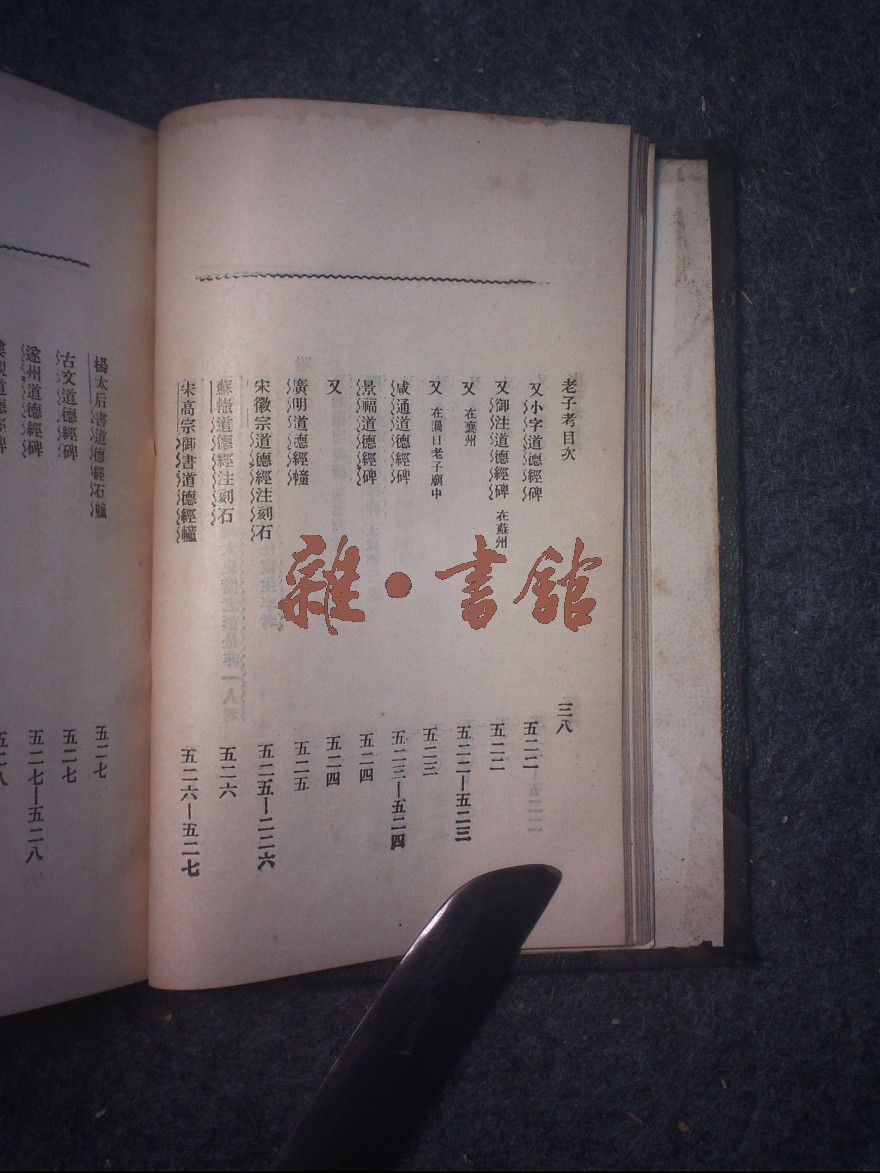 老子考目次 三八
又小字道德經碑 五二二
又御注道德經碑 在蘇州 五二二
又 在襄州 五二二—五二三
又 在漢口老子廟中 五二三
咸通道德經碑 五二三—五二四
景福道德經碑 五二四
又 五二四
廣明道德經幢 五二五
宋徽宗道德經注刻石 五二五—二二六
蘇轍道德經注刻石 五二六
宋高宗御書道德經幢 五二六—五二七
楊太后書道德經石幢 五二七
古文道德經碑 五二七
遂州道德經碑 五二七—五二八
觀道德經碑 五二八
雜·書館